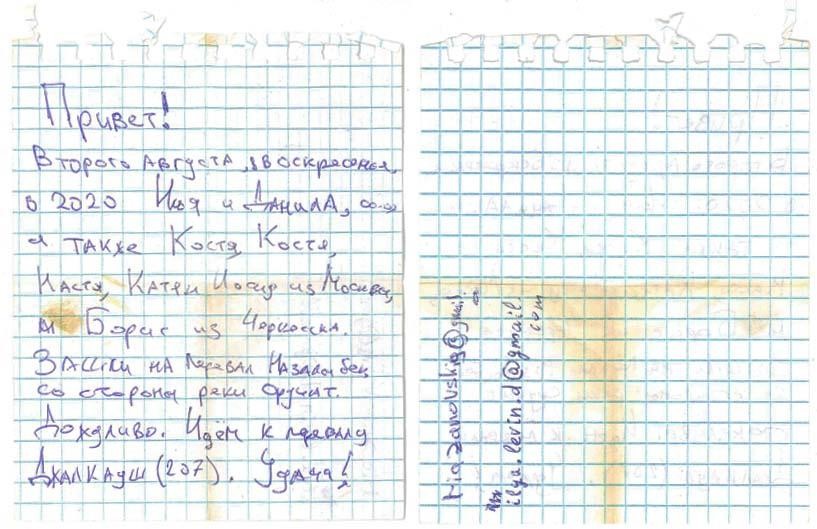 Привет!
Второго Августа, в воскресенье,
в 2020 Илья и Данила,
а также Костя, Костя,
Настя, Катя и Иосиф из Москвы,
Борис из Черкесска.
Зашли на перевал Назалыбек
со стороны реки
Дождливо. Идём к перевалу
Джалкауш (207). Удачи!
ilya.levin.d@gmail.
com